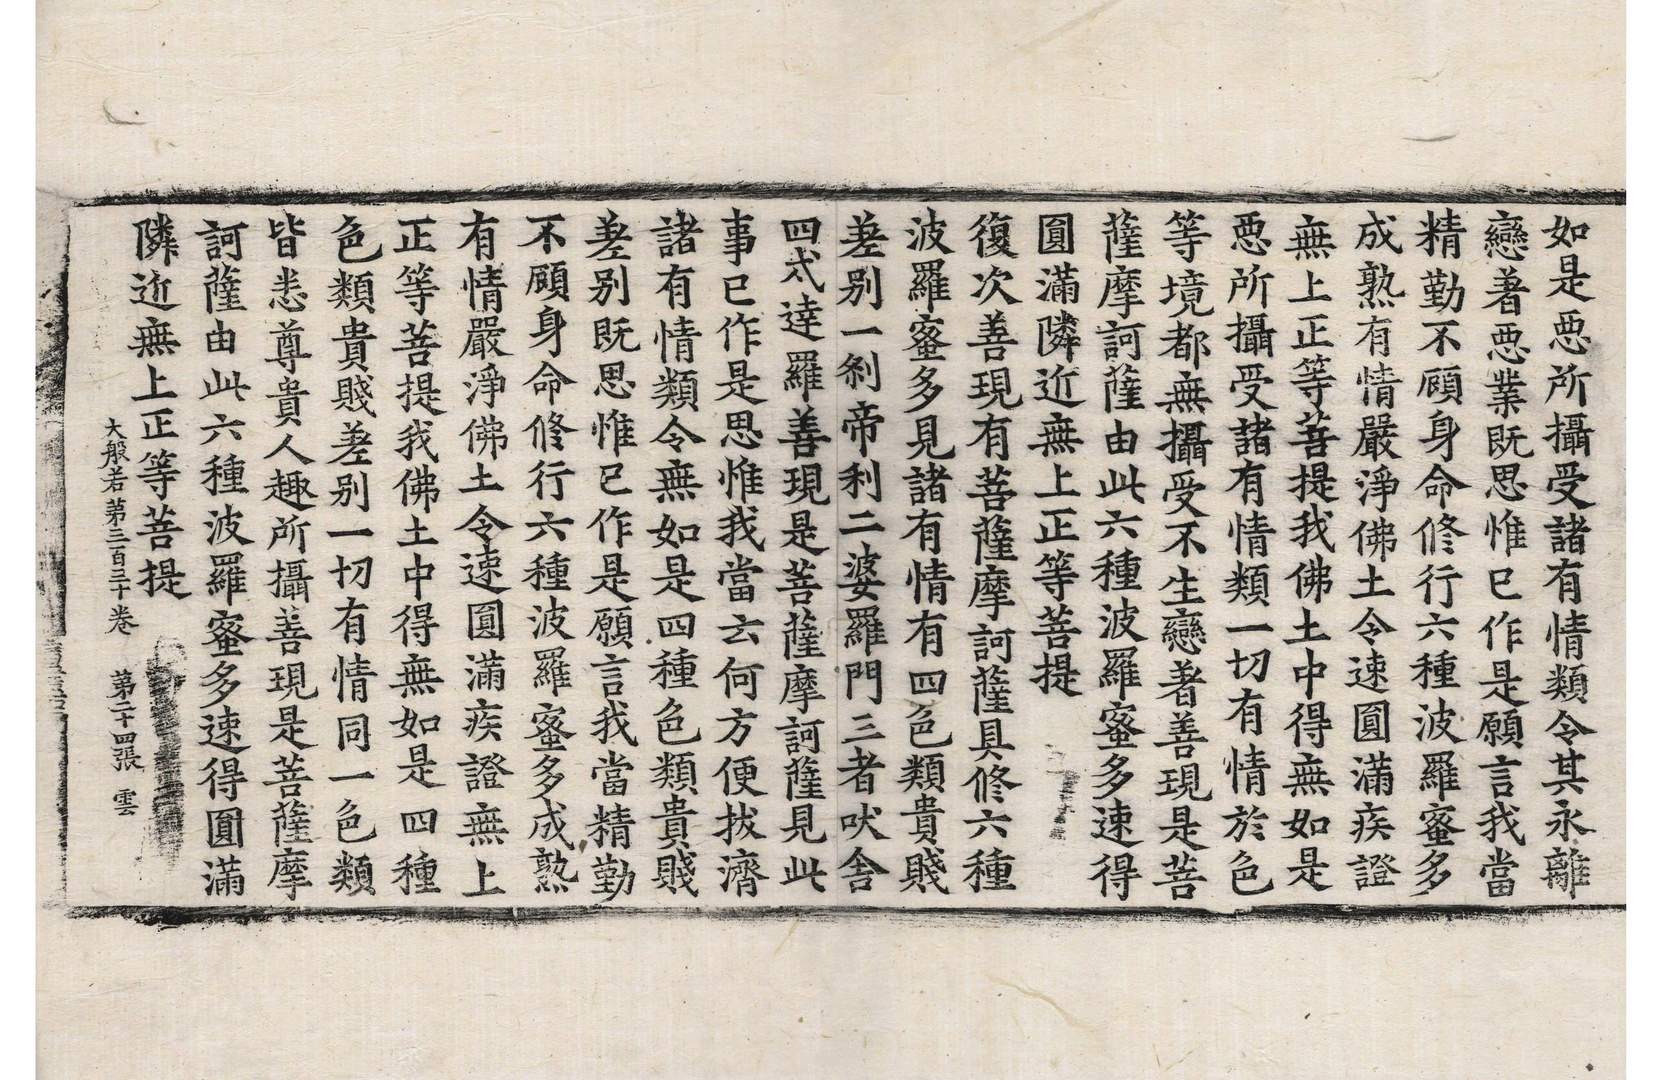 如是惡所攝受諸有情類令其永離
戀著惡業既思惟已作是願言我當
精勤不顧身命修行六種波羅蜜多
成熟有情嚴淨佛土令速圓滿疾證
無上正等菩提我佛土中得無如是
惡所攝受諸有情類一切有情於色
等境都無攝受不生戀著善現是菩
薩摩訶薩由此六種波羅蜜多速得
圓滿隣近無上正等菩提
復次善現有菩薩摩訶薩具修六種
波羅蜜多見諸有情有四色類貴賤
差别一剎帝利二婆羅門三者吠舍
四戍達羅善現是菩薩摩訶薩見此
事已作是思惟我當云何方便拔濟
諸有情類令無如是四種色類貴賤
差别既思惟已作是願言我當精勤
不顧身命修行六種波羅蜜多成熟
有情嚴淨佛土令速圓滿疾證無上
正等菩提我佛土中得無如是四種
色類貴賤差别一切有情同一色類
皆悉尊貴人趣所攝善現是菩薩摩
訶薩由此六種波羅蜜多速得圓滿
隣近無上正等菩提
大般若第三百三十卷 第二十四張 雲